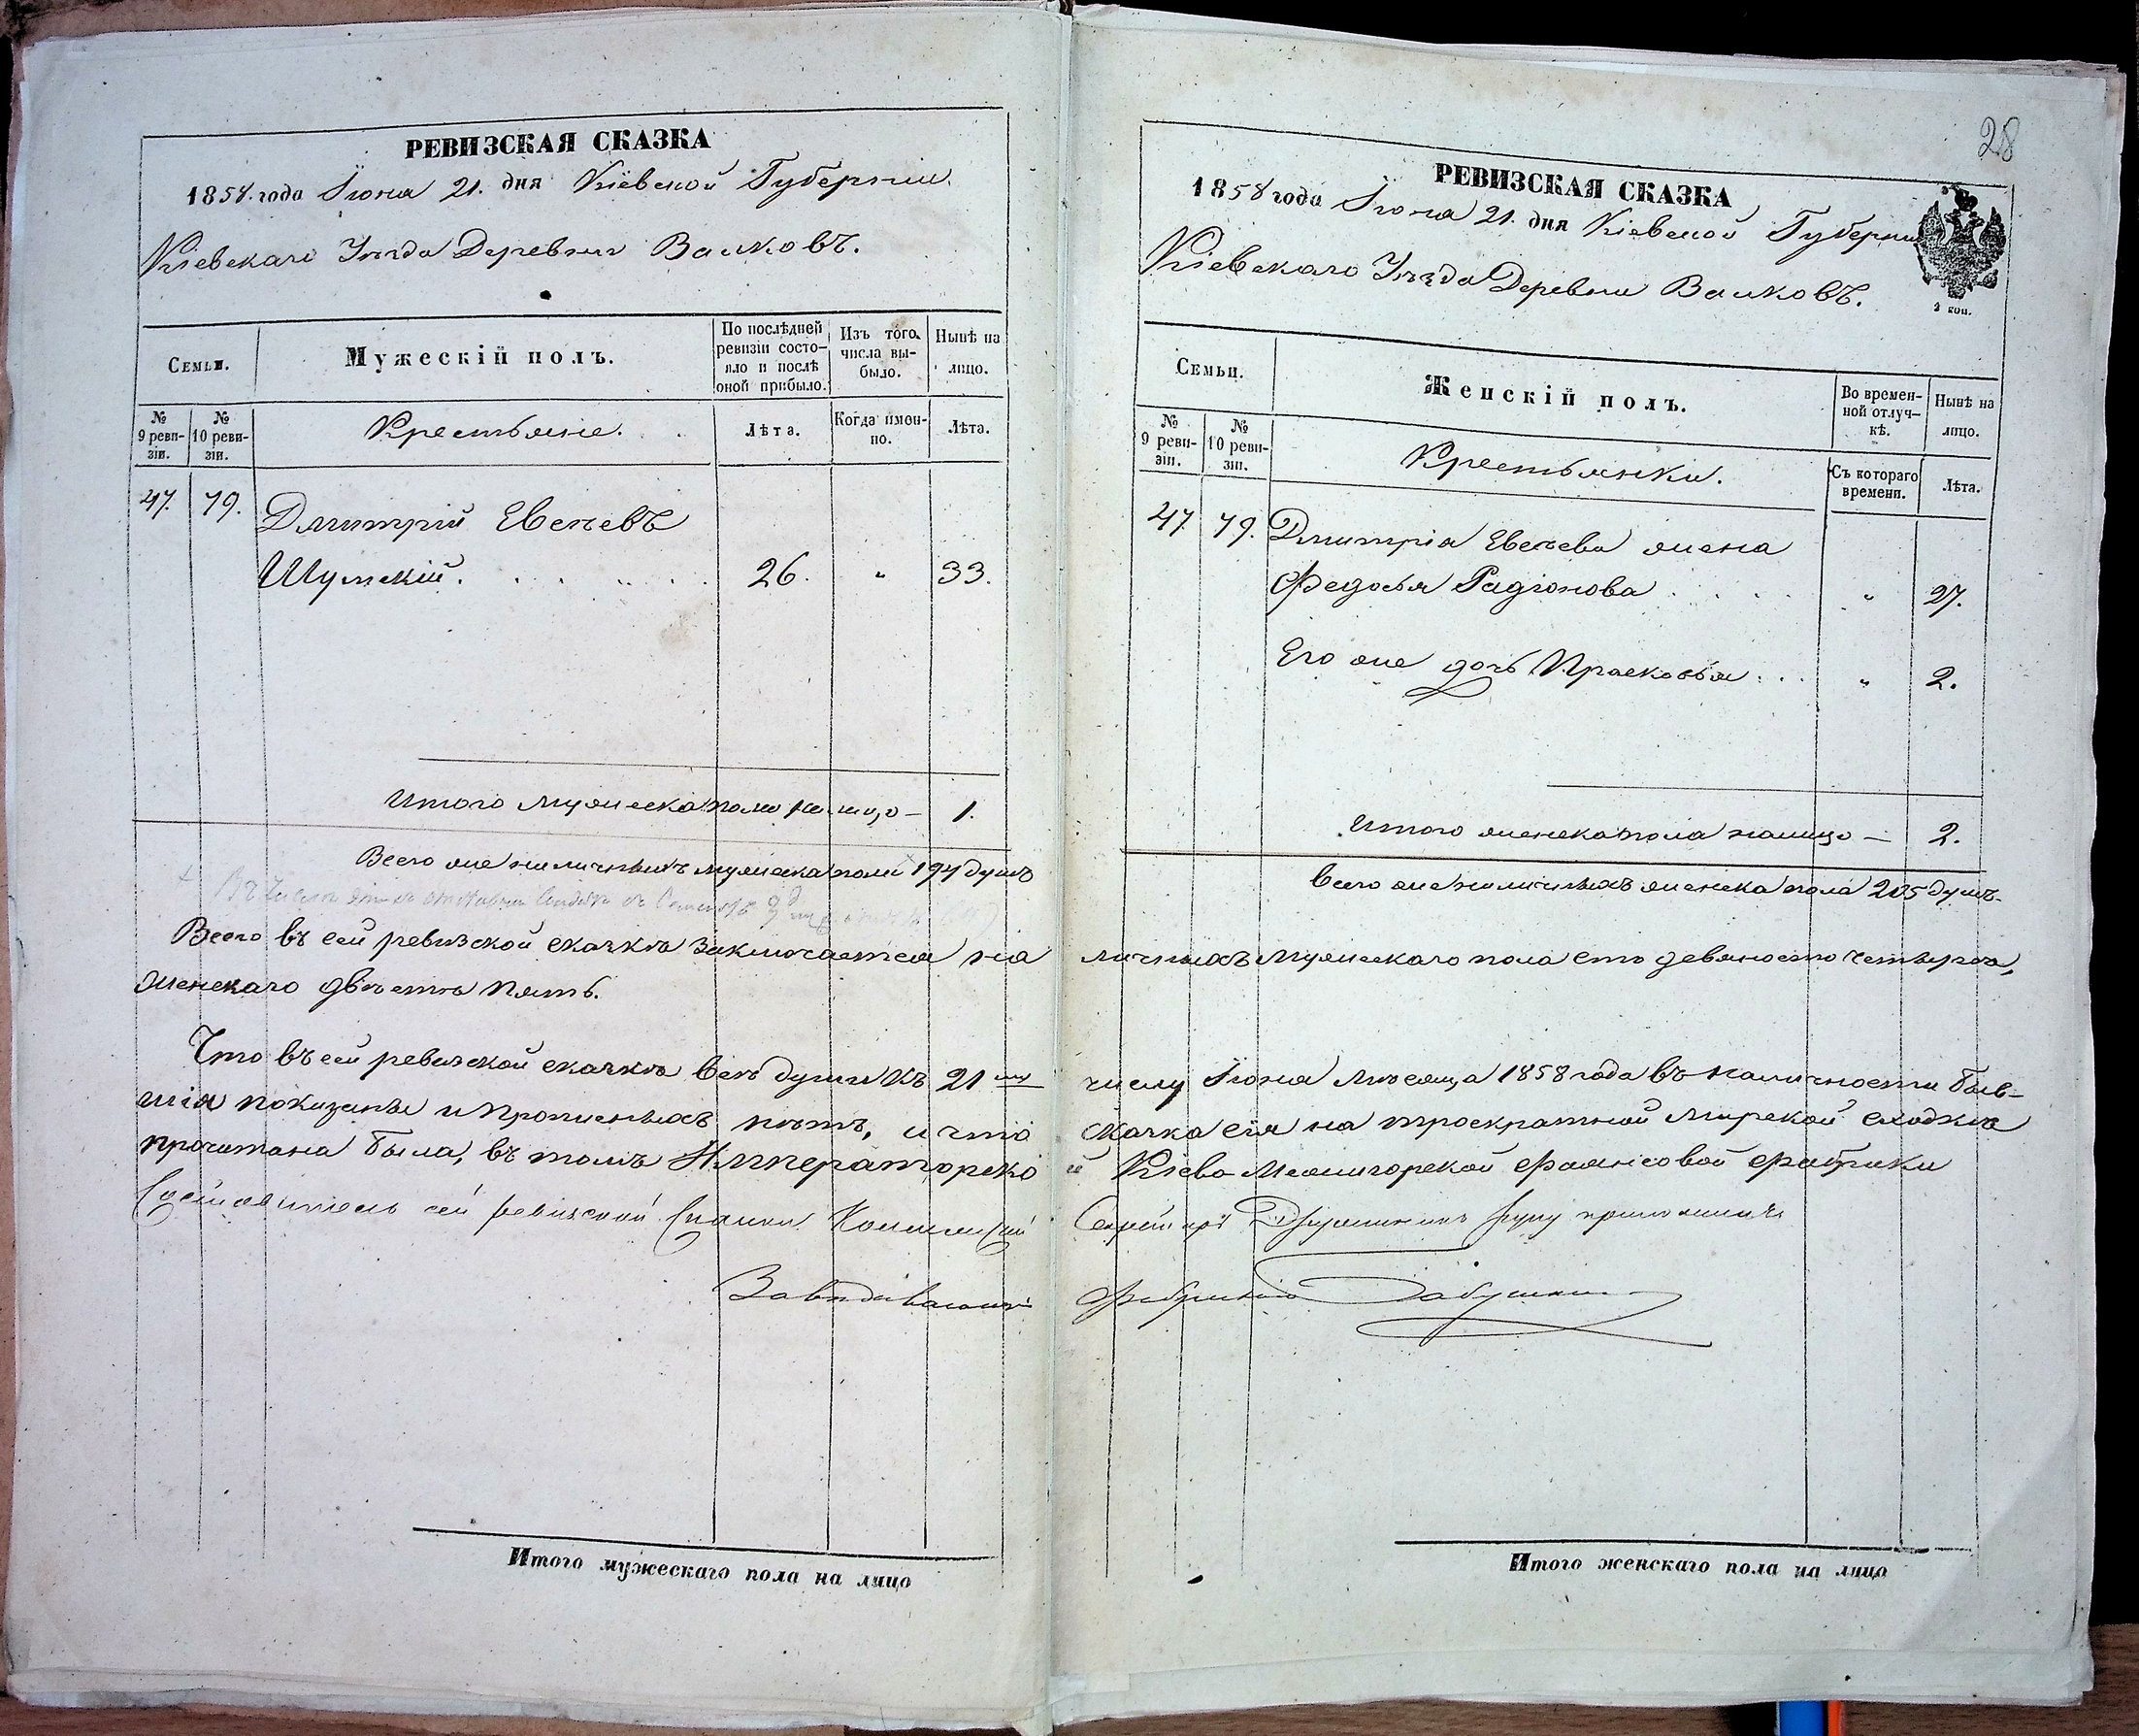 РЕВИЗСКАЯ СКАЗКА
1858 года Іюня 21. дня Кіевской Губерніи
Кіевскаго Уѣзда Деревни Валковъ.
Семьи.
Мужескій полъ.
По послѣдней ревизіи состояло и послѣ оной прибыло.
Изъ того числа выбыло.
Нынѣ на лицо.
№ 9 ревизіи.
№ 10 ревизіи.
Крестьяне.
Лѣта.
Когда имонно.
Лѣта.
47. 79. Дмитрій Евсеевъ
Шумскій. 26. " 33.
Итого мужеска пола на лицо — 1.
Всего же наличныхъ мужеска пола 194 душъ
Всего въ сей ревизской сказкѣ заключается на
женскаго двѣстѣ пять.
Что въ сей ревизской сказкѣ всѣ души къ 21
шія показаны и прописныхъ нѣтъ, и что
прочитана была, въ томъ Императорско
Составитель сей ревизской Сказки
Завѣдывающій
Итого мужескаго пола на лицо
28
РЕВИЗСКАЯ СКАЗКА
1858 года Іюня 21. дня Кіевской Губерніи
Кіевскаго Уѣзда Деревни Валковъ.
2 коп.
Семьи.
Женскій полъ.
Во временной отлучкѣ.
Нынѣ на лицо.
№ 9 ревизіи.
№ 10 ревизіи.
Крестьянки.
Съ котораго времени.
Лѣта.
47 79. Дмитрія Евсеева жена
Федосья Радіонова " 27.
Его же дочь Прасковья " 2.
Итого женска пола налицо — 2.
Всего же наличныхъ женска пола 205 душъ.
личныхъ мужескаго пола сто девяносто четыре,
числу Іюня мѣсяца 1858 года въ наличности быв-
сказка сія на троекратной мирской сходкѣ
й Кіево Межигорской фаянсовой фабрики
руку приложилъ
Фабрикою
Итого женскаго пола на лицо